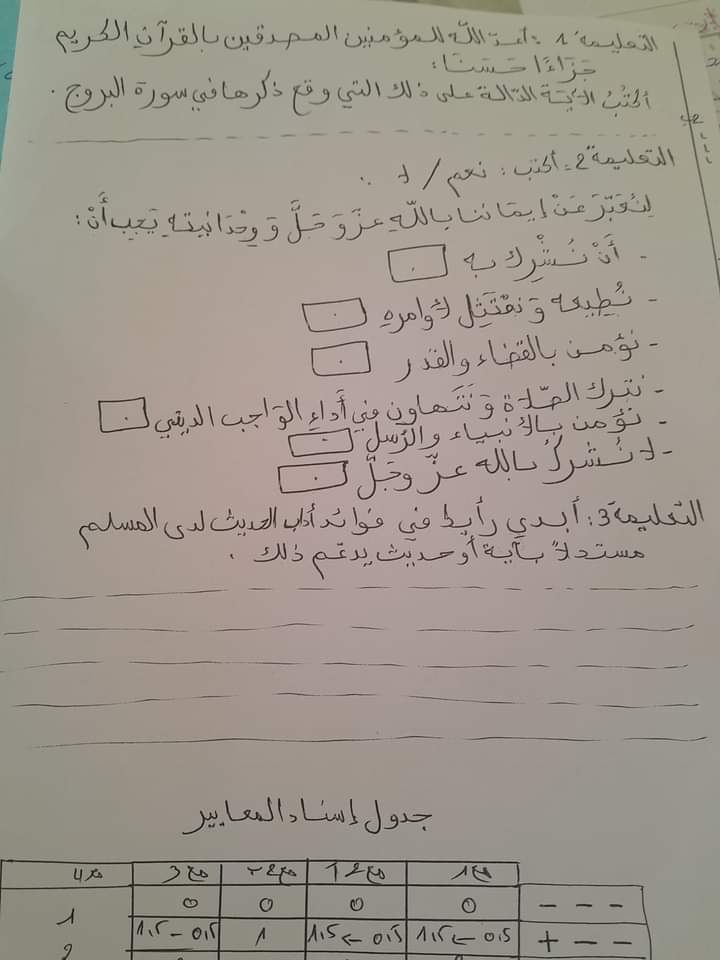 التعليمة 1: أعد الله للمؤمنين المصدقين بالقرآن الكريم
جَزَاءًا حَسَنًا:
أكتُبُ الآيَة الدّالة على ذلك التي وقع ذكرها في سورة البروج.
التعليمة 2: أكتب: نعم / لا:
لِنُعَبِّرَ عَنْ إيمَاننا باللّهِ عزّ وَ جَلَّ وَ وِحْدَانيته يَجِب أَنْ:
- أَنْ نُشْرِك به
- نُطِيعه وَ نمْتَثِل لأوامرهِ
- نؤمن بالقضاء والقدر
- نترك الصّلاة وَ نَتَهاون في أداءِ الوَاجب الديني
- نؤمن بالأنبياء والرّسل
- لا نُشركُ بالله عزّ وجَلّ
التعليمة 3: أبدي رأيك في فوائد آداب الحديث لدى المسلم
مستدلاً بآية أو حديث يدعّم ذلك.
جدول إسناد المعايير
مع1 مع2أ مع2ب مع3 مع4
- - - 0 0 0 0 1
+ - - 0,5 → 1,5 0,5 → 1,5 1 0,5 - 1,5 2